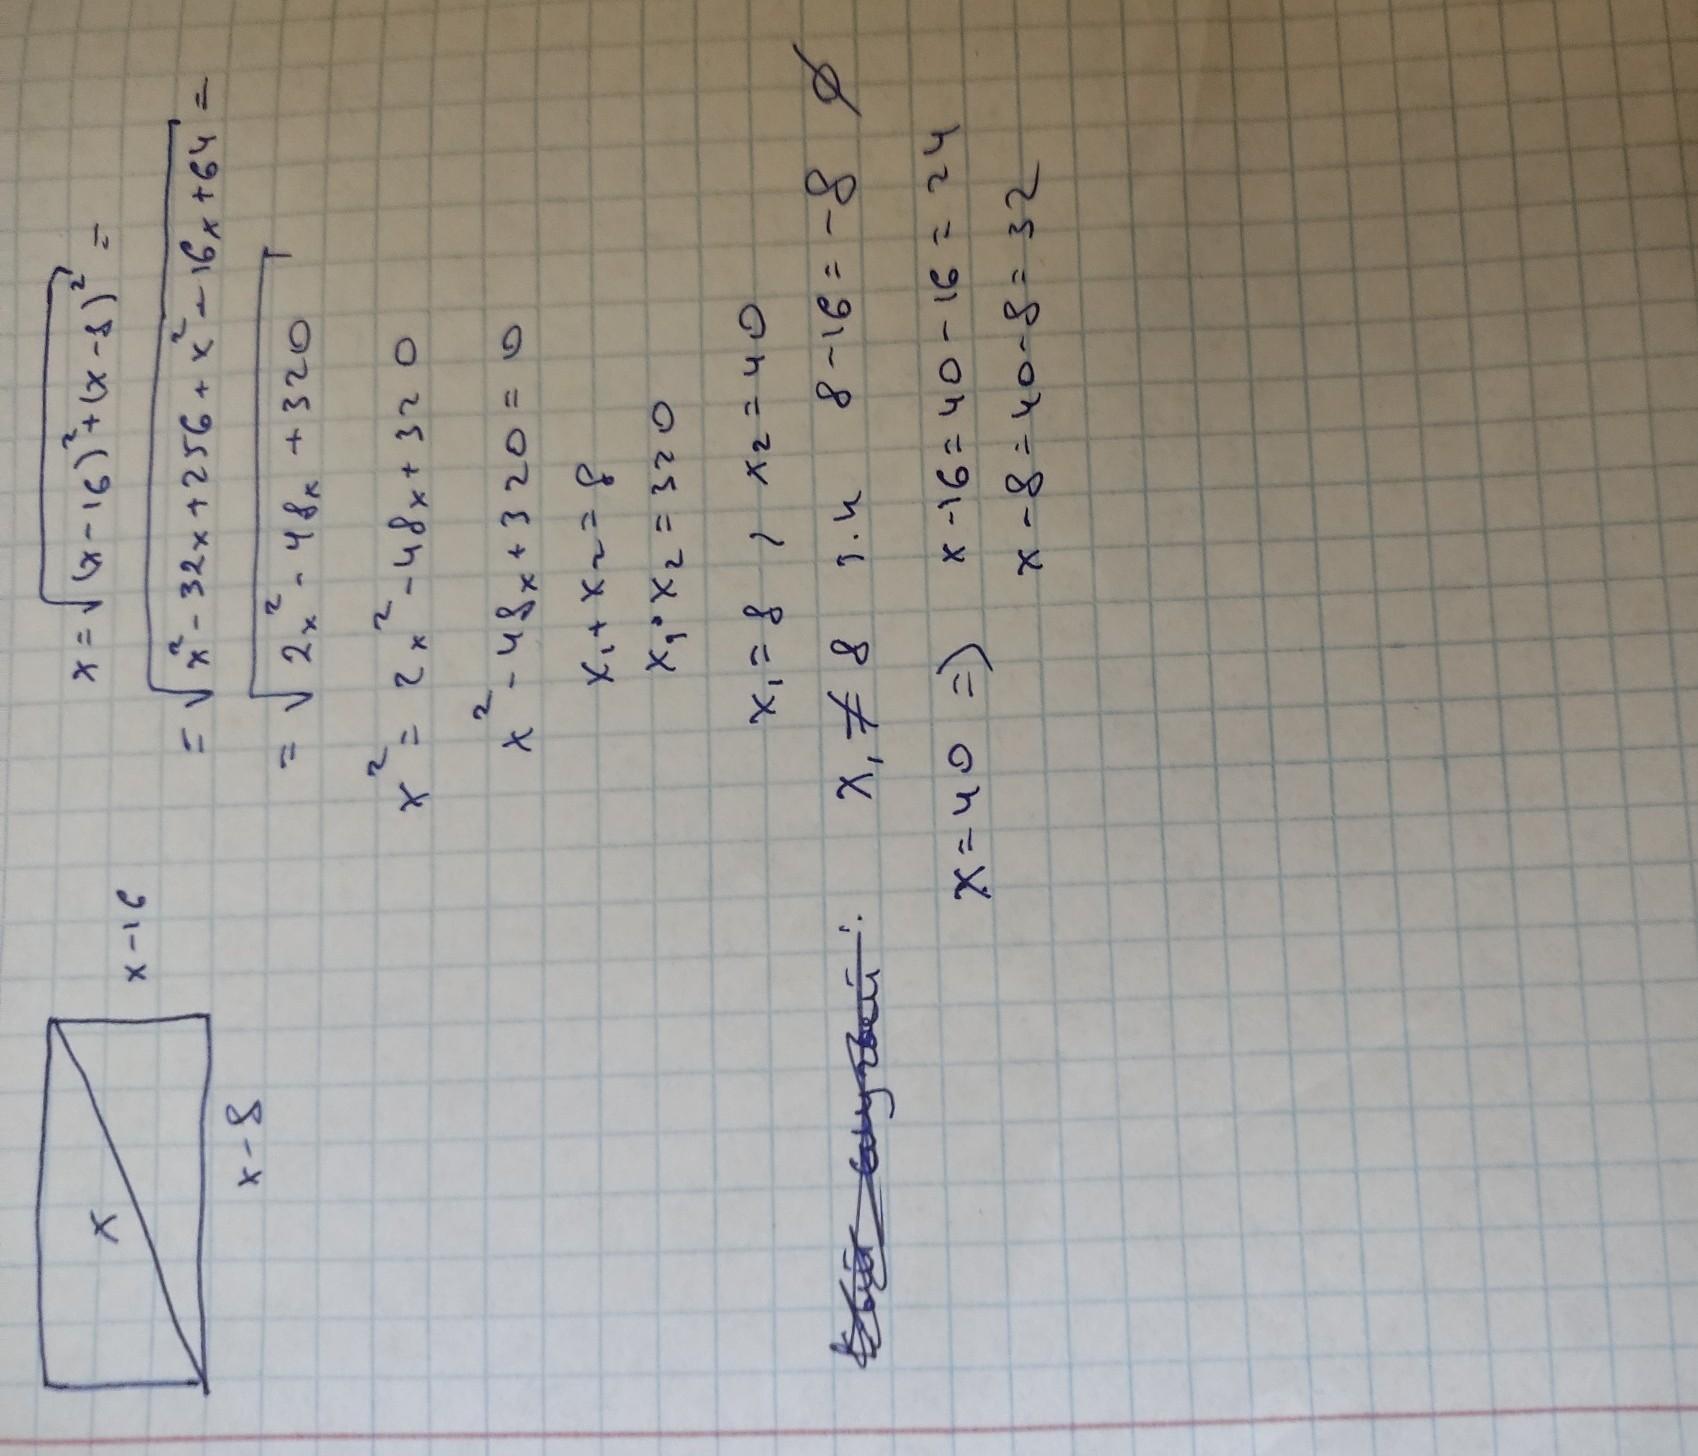 x
x-16
x-8
x=√(x-16)²+(x-8)² =
=√x²-32x+256+x²-16x+64 =
=√2x²-48x+320
x²=2x²-48x+320
x²-48x+320=0
x₁+x₂=8
x₁·x₂=320
x₁=8 , x₂=40
x₁≠8 т.к 8-16=-8 ∅
x=40 => x-16=40-16=24
x-8=40-8=32